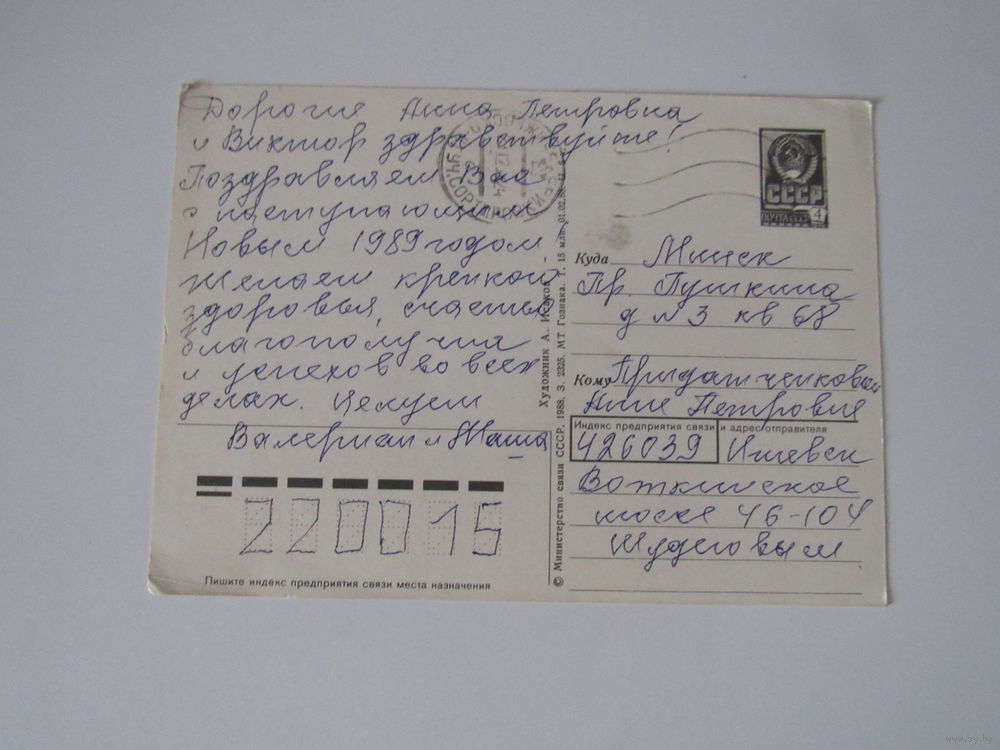 Дорогие Анна Петровна
и Виктор здравствуйте!
Поздравляем Вас
с наступающим
Новым 1989 годом.
Желаем крепкого
здоровья, счастья
благополучия
и успехов во всех
делах. Целуем
Валериан и Маша
220015
Пишите индекс предприятия связи места назначения
© Министерство связи СССР, 1988. З. 2325. МТ Гознака. Т. 15 млн. 01.02.88.
Художник А. Исаков
СССР
ПОЧТА СССР
4
Куда Минск
Пр. Пушкина
д N 3 кв 68
Кому
Анне Петровне
Индекс предприятия связи и адрес отправителя
426039 Ижевск
Воткинское
шоссе 46-104
www.ay.by